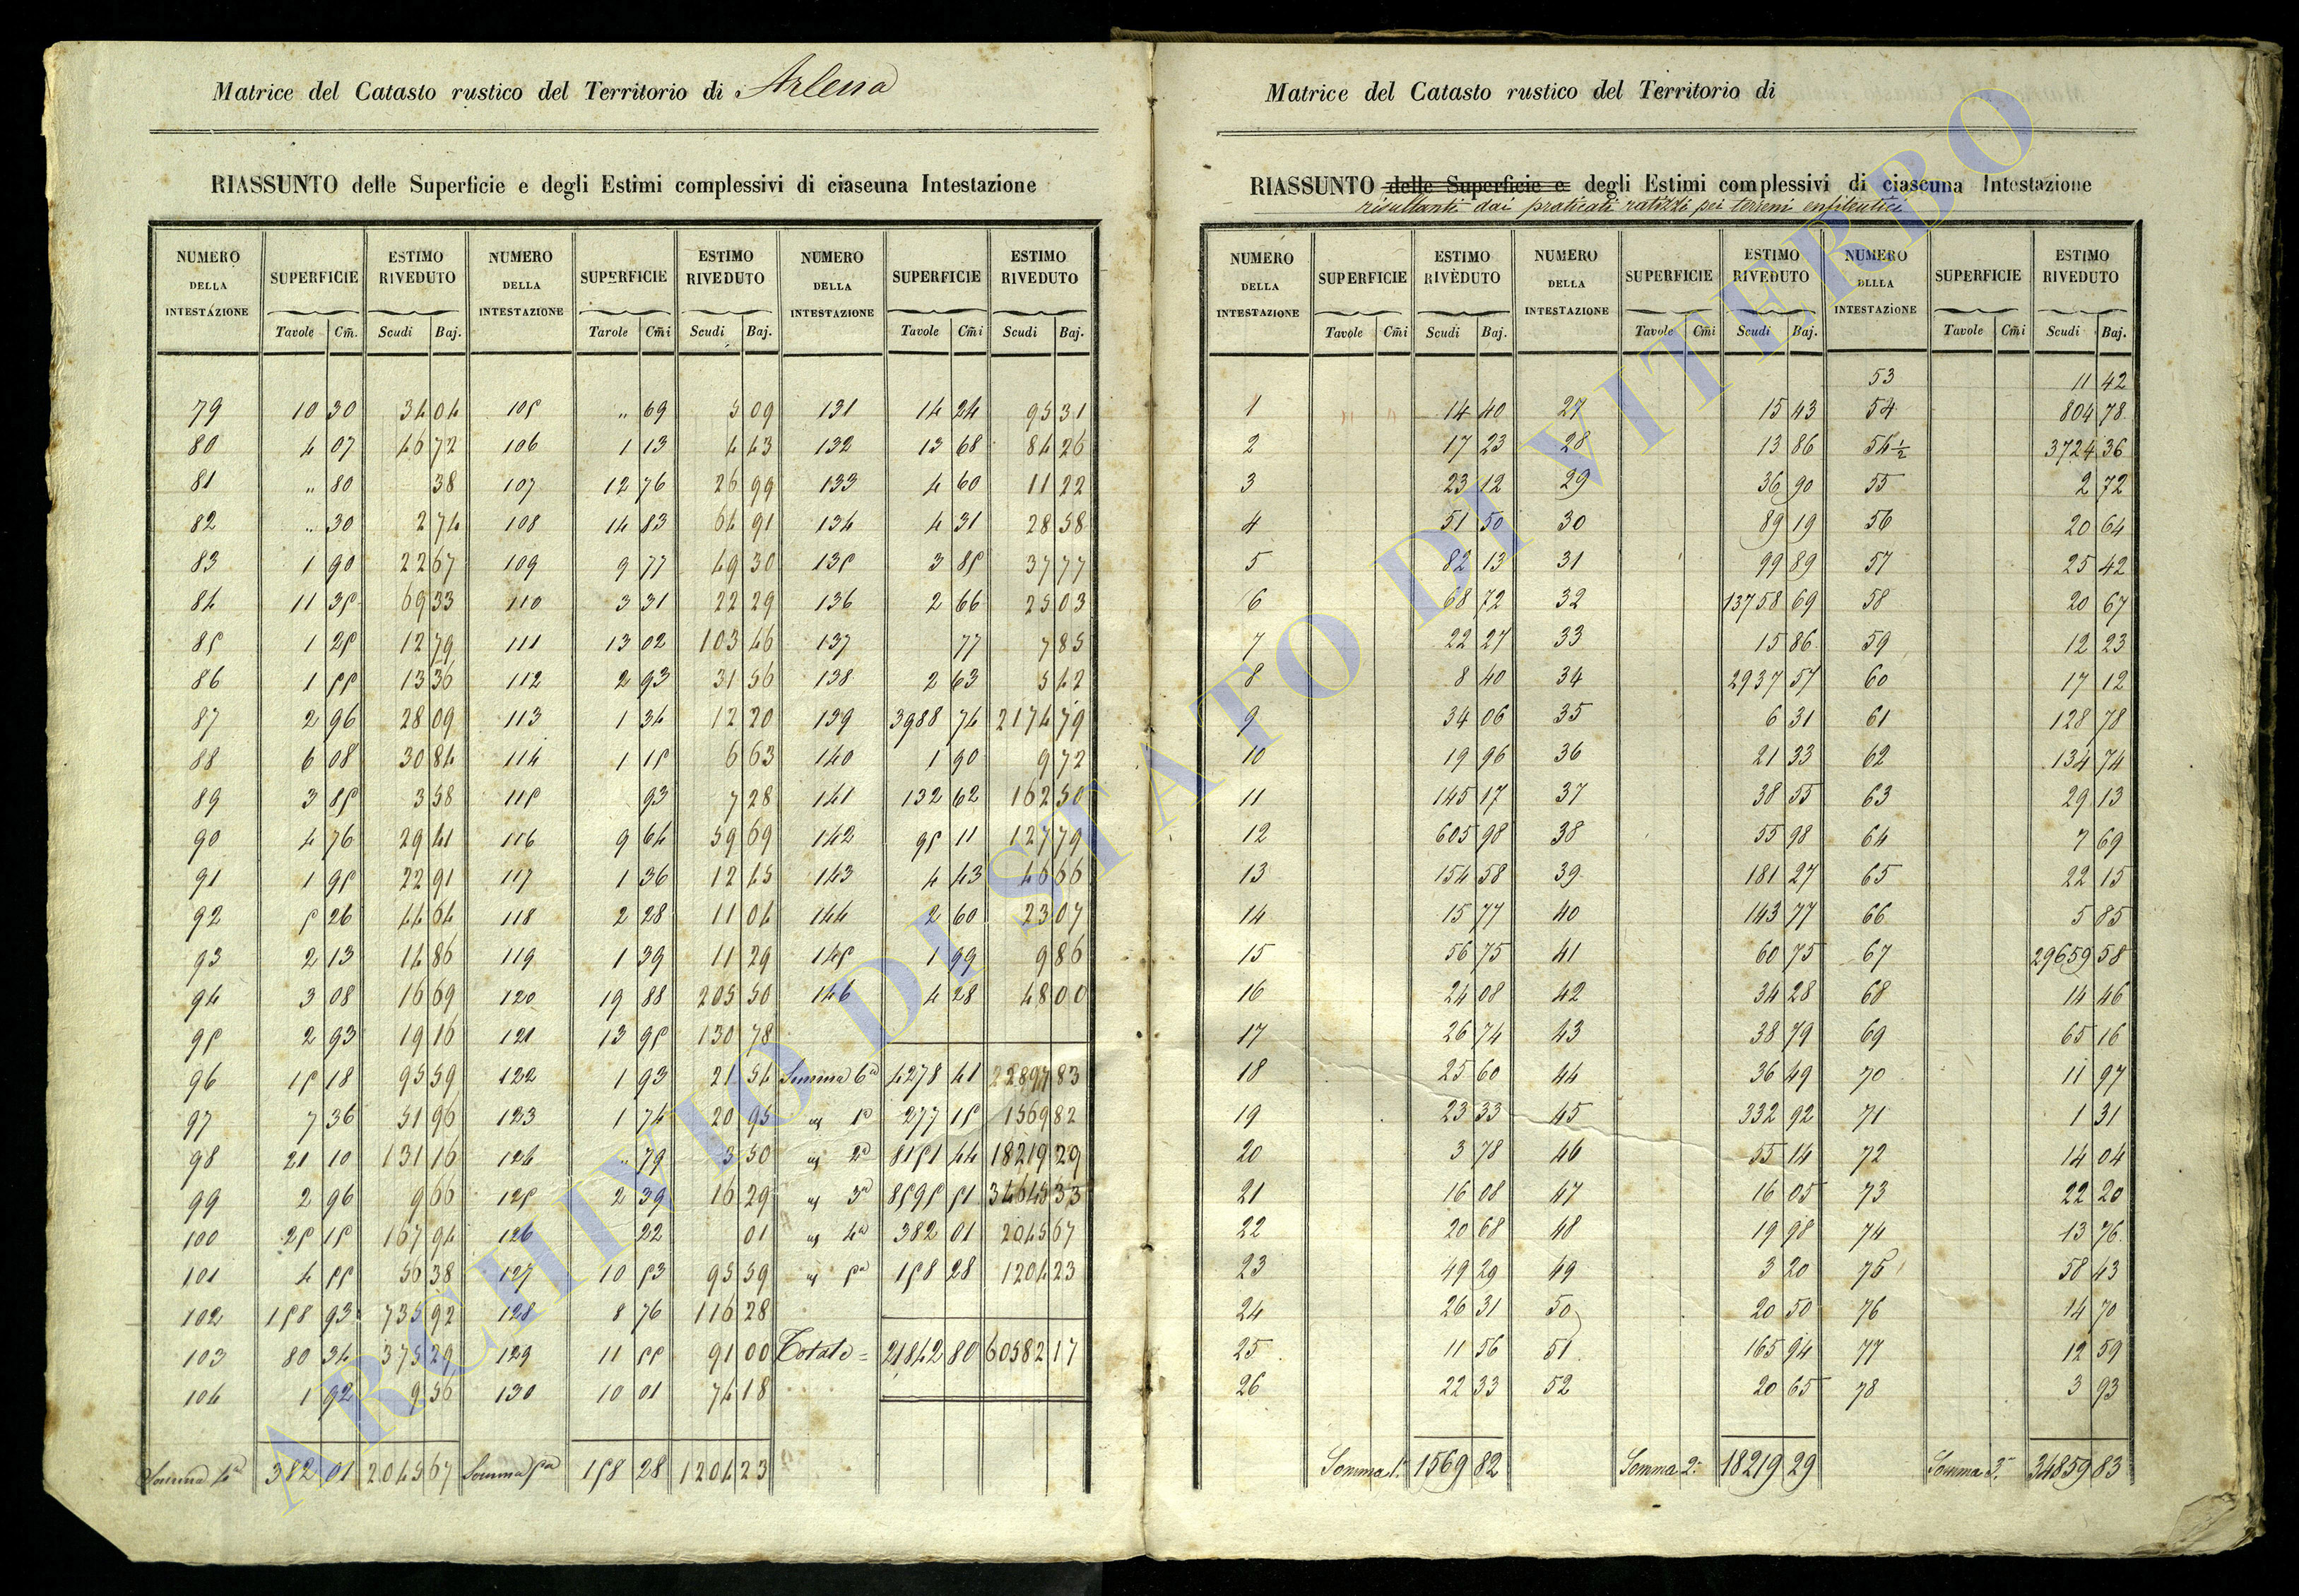 Matrice del Catasto rustico del Territorio di Arlena
RIASSUNTO delle Superficie e degli Estimi complessivi di ciascuna Intestazione
NUMERO DELLA INTESTAZIONE SUPERFICIE ESTIMO RIVEDUTO NUMERO DELLA INTESTAZIONE SUPERFICIE ESTIMO RIVEDUTO NUMERO DELLA INTESTAZIONE SUPERFICIE ESTIMO RIVEDUTO
Tavole Cm̃. Scudi Baj. Tavole Cm̃i Scudi Baj. Tavole Cm̃i Scudi Baj.
79 10 30 34 04 105 " 69 5 09 131 14 24 95 31
80 4 07 46 72 106 1 13 4 43 132 13 68 84 26
81 " 80 38 107 12 76 26 99 133 4 60 11 22
82 " 30 2 74 108 14 83 64 91 134 4 31 28 58
83 1 90 22 67 109 9 77 49 30 135 3 85 37 77
84 11 35 69 33 110 3 31 22 29 136 2 66 25 03
85 1 25 12 79 111 13 02 103 46 137 77 7 85
86 1 55 13 36 112 2 93 31 56 138 2 63 5 42
87 2 96 28 09 113 1 34 12 20 139 3988 74 2174 79
88 6 08 30 84 114 1 15 6 63 140 1 90 9 72
89 3 85 3 58 115 93 7 28 141 132 62 162 50
90 4 76 29 41 116 9 64 59 69 142 95 11 127 79
91 1 95 22 91 117 1 36 12 45 143 4 43 46 66
92 5 26 44 64 118 2 28 11 04 144 2 60 23 07
93 2 13 14 86 119 1 39 11 29 145 1 99 9 86
94 3 08 16 69 120 19 88 205 50 146 4 28 48 00
95 2 93 19 16 121 13 95 130 78
96 15 18 95 59 122 1 93 21 54 Somma 6a 4278 41 2289783
97 7 36 51 96 123 1 74 20 95 " 1a 277 15 1569 82
98 21 10 131 16 124 " 79 3 50 " 2a 8151 44 18219 29
99 2 96 9 66 125 2 39 16 29 " 3a 8595 51 34645 33
100 25 15 167 94 126 22 01 " 4a 382 01 2045 67
101 4 55 50 38 127 10 53 95 59 " 5a 158 28 1204 23
102 158 93 735 92 128 8 76 116 28
103 80 34 375 29 129 11 55 91 00 Totale = 21842 80 60582 17
104 1 92 9 56 130 10 01 74 18
Somma 4a 382 01 2045 67 Somma 5a 158 28 1204 23
Matrice del Catasto rustico del Territorio di
RIASSUNTO delle Superficie e degli Estimi complessivi di ciascuna Intestazione
risultanti dai praticati ratizzi pei terreni enfiteutici
NUMERO DELLA INTESTAZIONE SUPERFICIE ESTIMO RIVEDUTO NUMERO DELLA INTESTAZIONE SUPERFICIE ESTIMO RIVEDUTO NUMERO DELLA INTESTAZIONE SUPERFICIE ESTIMO RIVEDUTO
Tavole Cm̃i Scudi Baj. Tavole Cm̃i Scudi Baj. Tavole Cm̃i Scudi Baj.
53 11 42
1 14 40 27 15 43 54 804 78
2 17 23 28 13 86 54 1/2 3724 36
3 23 12 29 36 90 55 2 72
4 51 50 30 89 19 56 20 64
5 82 13 31 99 89 57 25 42
6 68 72 32 13758 69 58 20 67
7 22 27 33 15 86 59 12 23
8 8 40 34 2937 57 60 17 12
9 34 06 35 6 31 61 128 78
10 19 96 36 21 33 62 134 74
11 145 17 37 38 55 63 29 13
12 605 98 38 55 98 64 7 69
13 154 58 39 181 27 65 22 15
14 15 77 40 143 77 66 5 85
15 56 75 41 60 75 67 29659 58
16 24 08 42 34 28 68 14 46
17 26 74 43 38 79 69 65 16
18 25 60 44 36 49 70 11 97
19 23 33 45 332 92 71 1 31
20 3 78 46 55 14 72 14 04
21 16 08 47 16 05 73 22 20
22 20 68 48 19 98 74 13 76
23 49 29 49 3 20 75 58 43
24 26 31 50 20 50 76 14 70
25 11 56 51 165 94 77 12 59
26 22 33 52 20 65 78 3 93
Somma 1a 1569 82 Somma 2a 18219 29 Somma 3a 34859 83
ARCHIVIO DI STATO DI VITERBO